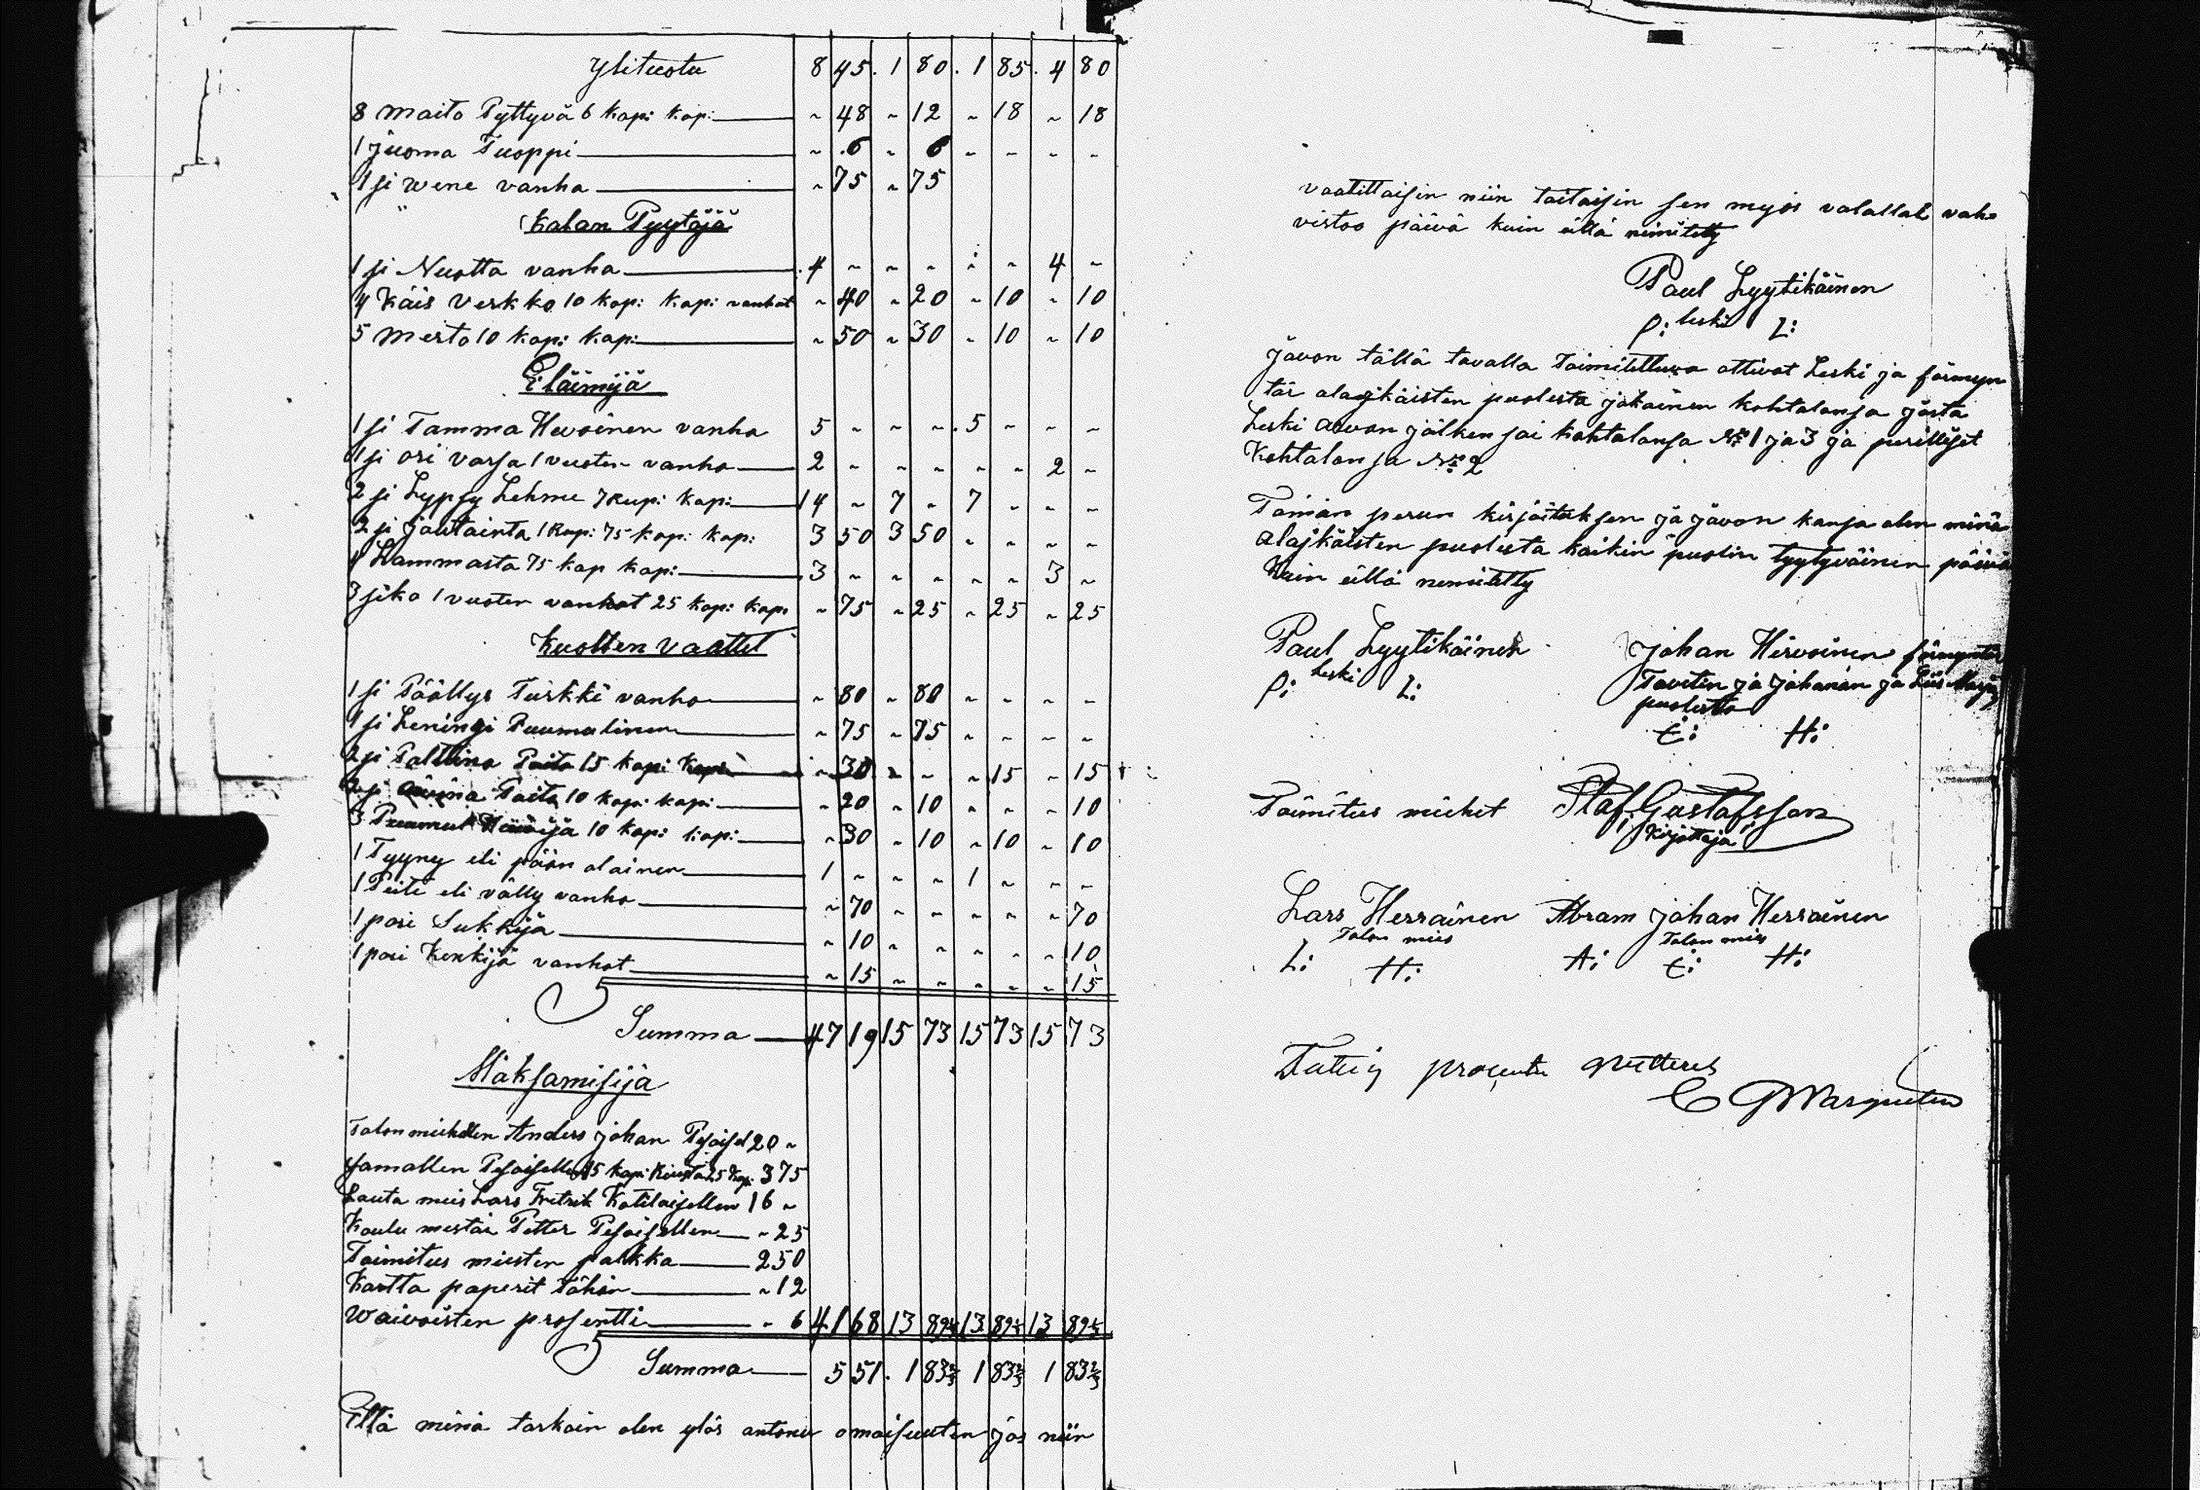 Ylituotu 8 45. 1 80. 1 85. 4 80
8 maito Pyttyvä 6 kop: kop: ~ 48 ~ 12 ~ 18 ~ 18
1 juoma Tuoppi ~ 6 ~ 6 ~ ~ ~ ~
1 si wene vanha ~ 75 ~ 75
Kalan Pyytöjä
1 si Nuotta vanha 4 ~ ~ ~ ~ ~ 4 ~
4 Käis Verkko 10 kop: kop: vanhat ~ 40 ~ 20 ~ 10 ~ 10
5 Merto 10 kop: kop: ~ 50 ~ 30 ~ 10 ~ 10
Eläimijä
1 si Tamma Hevoinen vanha 5 ~ ~ ~ 5 ~ ~ ~
1 si ori varsa 1 vuoten vanha 2 ~ ~ ~ ~ ~ 2 ~
2 si Lypsy Lehme 7 Rup: kap: 14 ~ 7 ~ 7 ~ ~ ~
2 si joutainta 1 Rup: 75 kop: kap: 3 50 3 50 ~ ~ ~ ~
4 Lammasta 75 kap kap: 3 ~ ~ ~ ~ ~ 3 ~
3 sika 1 vuoten vanhat 25 kop: kap: ~ 75 ~ 25 ~ 25 ~ 25
Kuolten Vaattet
1 si Päällys Turkki vanha ~ 80 ~ 80 ~ ~ ~ ~
1 si Leningi Puumulinen ~ 75 ~ 75 ~ ~ ~ ~
2 si Palttina Paita 15 kop: kap: ~ 30 ~ ~ ~ 15 ~ 15
2 si Paita 10 kop: kap: ~ 20 ~ 10 ~ ~ ~ 10
3 10 kop: kap: ~ 30 ~ 10 ~ 10 ~ 10
1 Tyyny eli pään alainen 1 ~ ~ ~ 1 ~ ~ ~
1 Peite eli välly vanha ~ 70 ~ ~ ~ ~ ~ 70
1 pari Sukkija ~ 10 ~ ~ ~ ~ ~ 10
1 pari Kenkijä vanhat ~ 15 ~ ~ ~ ~ ~ 15
Summa 47 19 15 73 15 73 15 73
Maksamisija
Talon miehellen Anders Johan 20 ~
375
Lauta mies Lars Fretrik Kotilaisellen 16 ~
Koulu mestar Petter Pesoisellen ~ 25
Toimitus miesten palkka 250
Kartta paperit tähän ~ 12
Waivoisten prosentti ~ 6 41 68 13 89⅓ 13 89⅓ 13 89⅓
Summa 5 51. 1 83⅔ 1 83⅔ 1 83⅔
Että minä tarkoin olen ylös antonu omaisuuten jos niin
vaatittaisin niin taitaisin sen myös valallah vah-
vistoo päivä kuin ellä nimitetty
Paul Lyytikäinen
P: leski L:
Javon tällä tavalla Toimitettuva ottivat Leski ja förmyn
tär alajkäisten puolesta jokainen kohtalonsa josta
Leski arvon jälken sai kohtalonsa No 1 ja 3 ja perilliset
Kohtalonsa No 2
Tämän perun kirjoituksen ja javon kansa olen minä
alajkäisten puolesta kaikin puolin tyytyväinen päivä
Kuin ellä nimitetty
Paul Lyytikäinen
P: leski L:
Johan Hirvoinen förmyntär
Tavetin ja Johanan ja Liis
puolesta
E: H:
Toimitus miehet Staf: Gustafsson
Kirjottaja
Lars Herrainen Abram Johan Herrainen
Talon mies Talon mies
L: H: A: E: H: